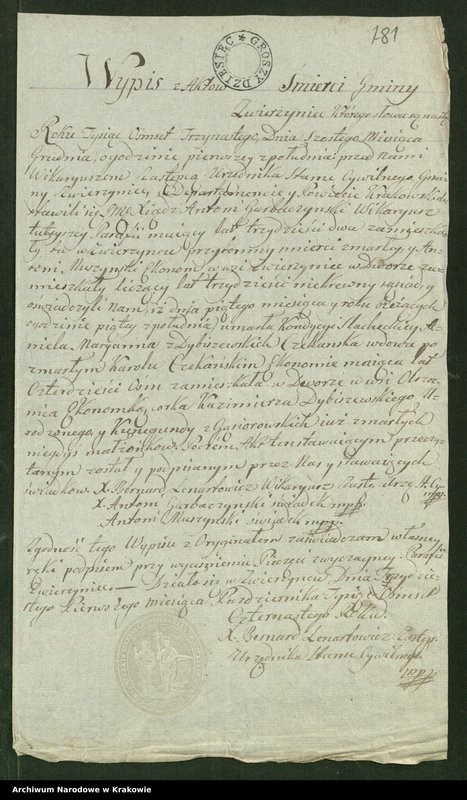 181
DZIESIĘĆ GROSZY
Wypis z Aktów Śmierci Gminy
Zwierzyniec którego słowa są
Roku Tysiąc Osmset Trzynastego, Dnia Szostego Miesiąca
Grudnia, o godzinie pierwszey z południa przed nami
Wikaryuszem Zastępcą Urzędnika Stanu Cywilnego, Gmi-
ny Zwierzyniec, w Departamencie y Powiecie Krakowskim
stawili się Xiądz Antoni Garbaczynski Wikaryusz
tuteyszy Parafii maiący lat trzydzieści dwa zamieszka-
ły tu w Zwierzyncu przytomny smierci zmarłey, y An-
toni Muszynski Ekonom w wsi Zwierzyniec w Dworze za-
mieszkały liczący lat trzydzieści niekrewny sąsiad, y
oswiadczyli nam, iż dnia piątego miesiąca y roku bieżących
o godzinie piątey z południa, umarła Kondycyi Slacheckiey A-
niela Maryanna z Dybiszewskich Czekanska wdowa po
zmarłym Karolu Czekańskim Ekonomie maiąca lat
Czterdzieści Osm zamieszkała w Dworze w wsi
Ekonomka, corka Kazimierza Dybiszewskiego U-
rodzonego, y Kunegundy z Gąsiorowskich iuż zmarłych
niegdys małżonkow. Poczem Akt ten stawaiącym przeczy-
tanym został y podpisanym przez Nas y stawaiących
swiadkow. X. Bernard Lenartowicz Wikaryusz Zastę: Urzę: St. Cy.
mpp.
X. Antoni Garbaczynski swiadek mpp.
Antoni Muszynski swiadek mpp.
Zgodność tego Wypisu z Oryginałem zaświadczam własney
ręki podpisem przy wyciśnieniu Pieczęci zwyczayney Parafii
Zwierzyniec. — Działo się w Zwierzyncu Dnia
Pierwszego miesiąca Pazdziernika Tysiąc Osmset
Czternastego Roku.
X. Bernard Lenartowicz Zastęp.
Urzędnika Stanu Cywilnego
mpp.
Archiwum Narodowe w Krakowie